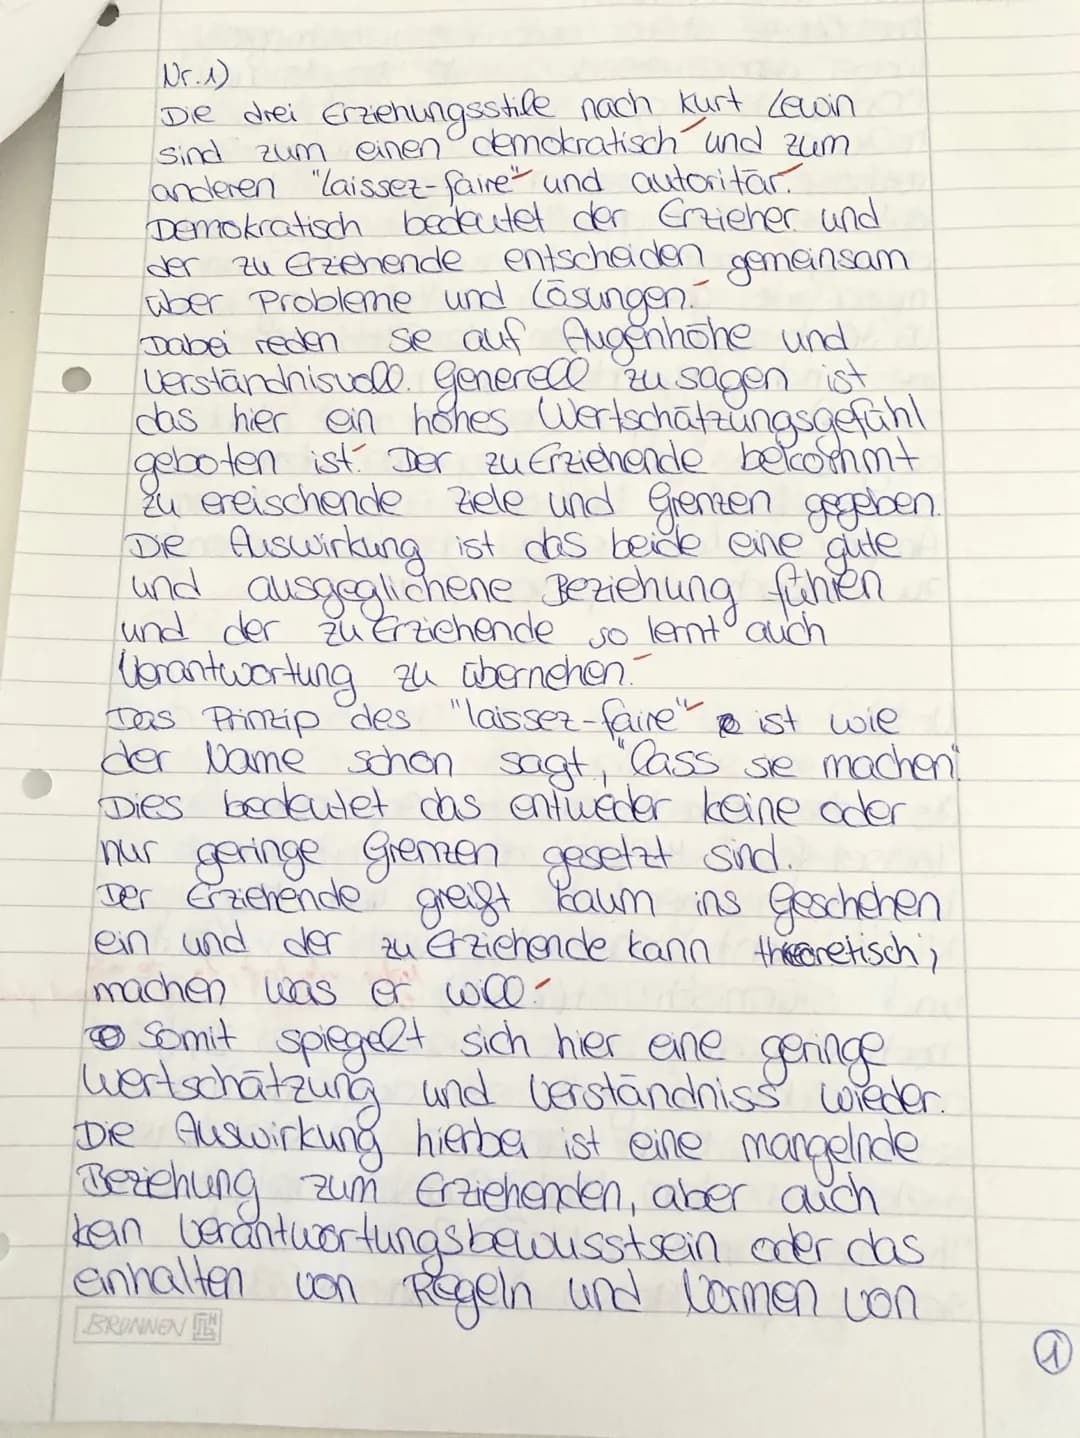 Nr. 1)
Die drei Erziehungsstile nach Kurt Lewin
sind zum einen demokratisch und zum
anderen "laissez-faire" und autoritär.
Demokratisch bedeutet der Erzieher und
der zu Erziehende entscheiden gemeinsam
über Probleme und Lösungen.
Dabei reden sie auf Augenhöhe und
Verständnisvoll. Generell zu sagen ist
das hier ein hohes Wertschätzungsgefühl
geboten ist. Der zu Erziehende bekommt
zu ereischende Ziele und Grenzen gegeben.
Die Auswirkung ist das beide eine gute
und ausgeglichene Beziehung fühlen
und der zu Erziehende so lernt auch
Verantwortung zu übernehen.
Das Prinzip des "laissez-faire" ist wie
der Name schon sagt, "Lass sie machen".
Dies bedeutet das entweder keine oder
nur geringe Grenzen gesetzt sind.
Der Erziehende greift kaum ins Geschehen
ein und der zu Erziehende kann theoretisch,
machen was er will.
Somit spiegelt sich hier eine geringe
Wertschätzung und Verständniss wieder.
Die Auswirkung hierbei ist eine mangelnde
Beziehung zum Erziehenden, aber auch
kein Verantwortungsbewusstsein oder das
einhalten von Regeln und Normen von
BRUNNEN
1